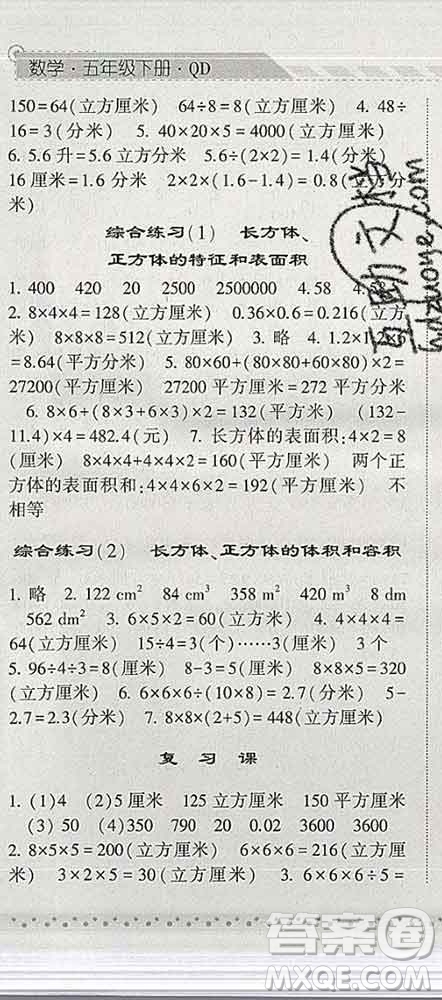 数学·五年级下册·QD
150=64(立方厘米) 64÷8=8(厘米) 4. 48÷
16=3(分米) 5. 40×20×5=4000(立方厘米)
6. 5.6升=5.6立方分米 5.6÷(2×2)=1.4(分米)
16厘米=1.6分米 2×2×(1.6-1.4)=0.8(立方分
米)
综合练习(1) 长方体、
正方体的特征和表面积
1. 400 420 20 2500 2500000 4.58
2. 8×4×4=128(立方厘米) 0.36×0.6=0.216(立方
米) 8×8×8=512(立方厘米) 3. 略 4. 1.2×1
=8.64(平方分米) 5. 80×60+(80×80+60×80)×2=
27200(平方厘米) 27200平方厘米=272平方分米
6. 8×6+(8×3+6×3)×2=132(平方米) (132-
11.4)×4=482.4(元) 7. 长方体的表面积:4×2=8
(厘米) 8×4×4+4×4×2=160(平方厘米) 两个正
方体的表面积和:4×4×6×2=192(平方厘米) 不
相等
综合练习(2) 长方体、正方体的体积和容积
1. 略 2. 122 cm² 84 cm³ 358 m² 420 m³ 8 dm
562 dm² 3. 6×5×2=60(立方米) 4. 4×4×4=
64(立方厘米) 15÷4=3(个)……3(厘米) 3个
5. 96÷4÷3=8(厘米) 8-3=5(厘米) 8×8×5=320
(立方厘米) 6. 6×6×6÷(10×8)=2.7(分米) 5-
2.7=2.3(分米) 7. 8×8×(2+5)=448(立方厘米)
复习课
1. (1)4 (2)5厘米 125立方厘米 150平方厘米
(3) 50 (4)350 790 20 0.02 3600 3600
2. 8×5×5=200(立方厘米) 6×6×6=216(立方厘
米) 3×2×5=30(立方厘米) 3. 6×6×6÷5=
答案圈
MXQE.COM